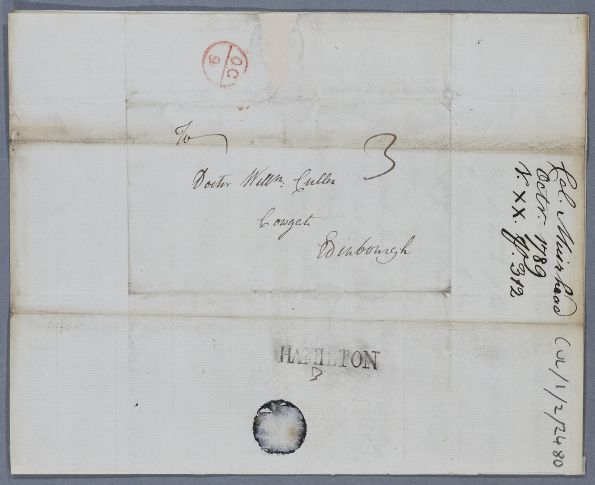 OC
9
To
3
Doctor Willm. Cullen
Cowgate
Edinbourgh
HAMILTON
3
Col. Muirhead
Octr. 1789
V. XX. p. 312
CUL/1/2/2480